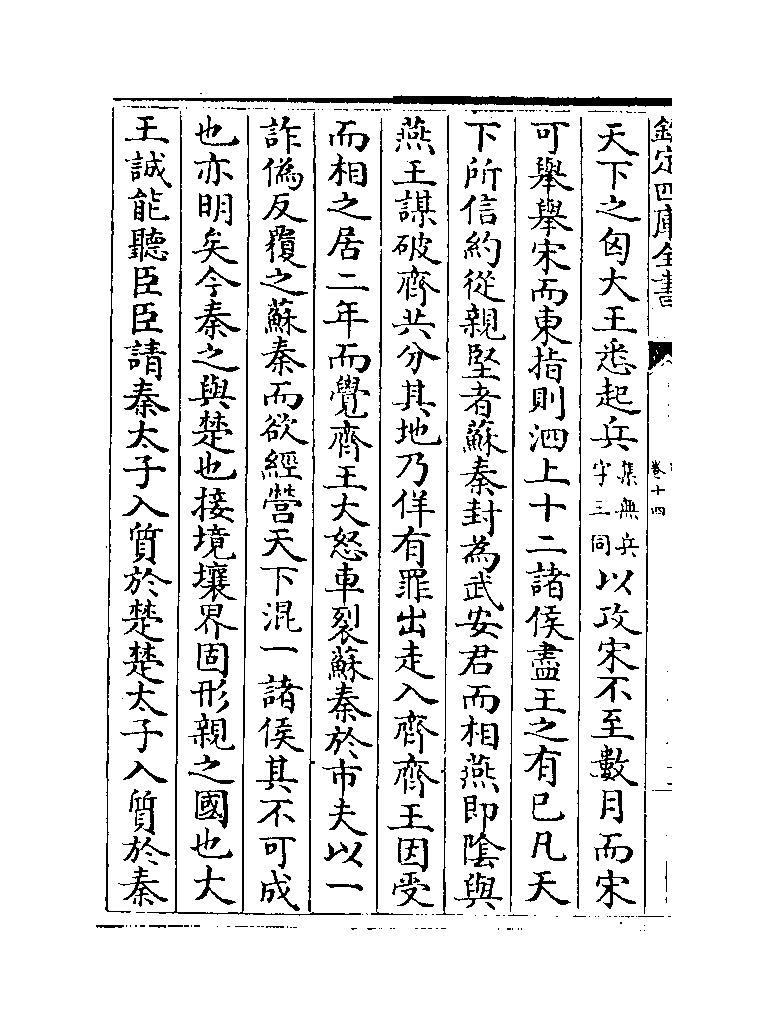 欽定四庫全書
卷十四
天下之匈大王悉起兵集無兵字三同以攻宋不至數月而宋
可舉舉宋而東指則泗上十二諸侯盡王之有已凡天
下所信約從親堅者蘇秦封為武安君而相燕即陰與
燕王謀破齊共分其地乃佯有罪出走入齊齊王因受
而相之居二年而覺齊王大怒車裂蘇秦於市夫以一
詐偽反覆之蘇秦而欲經營天下混一諸侯其不可成
也亦明矣今秦之與楚也接境壤界固形親之國也大
王誠能聽臣臣請秦太子入質於楚楚太子入質於秦